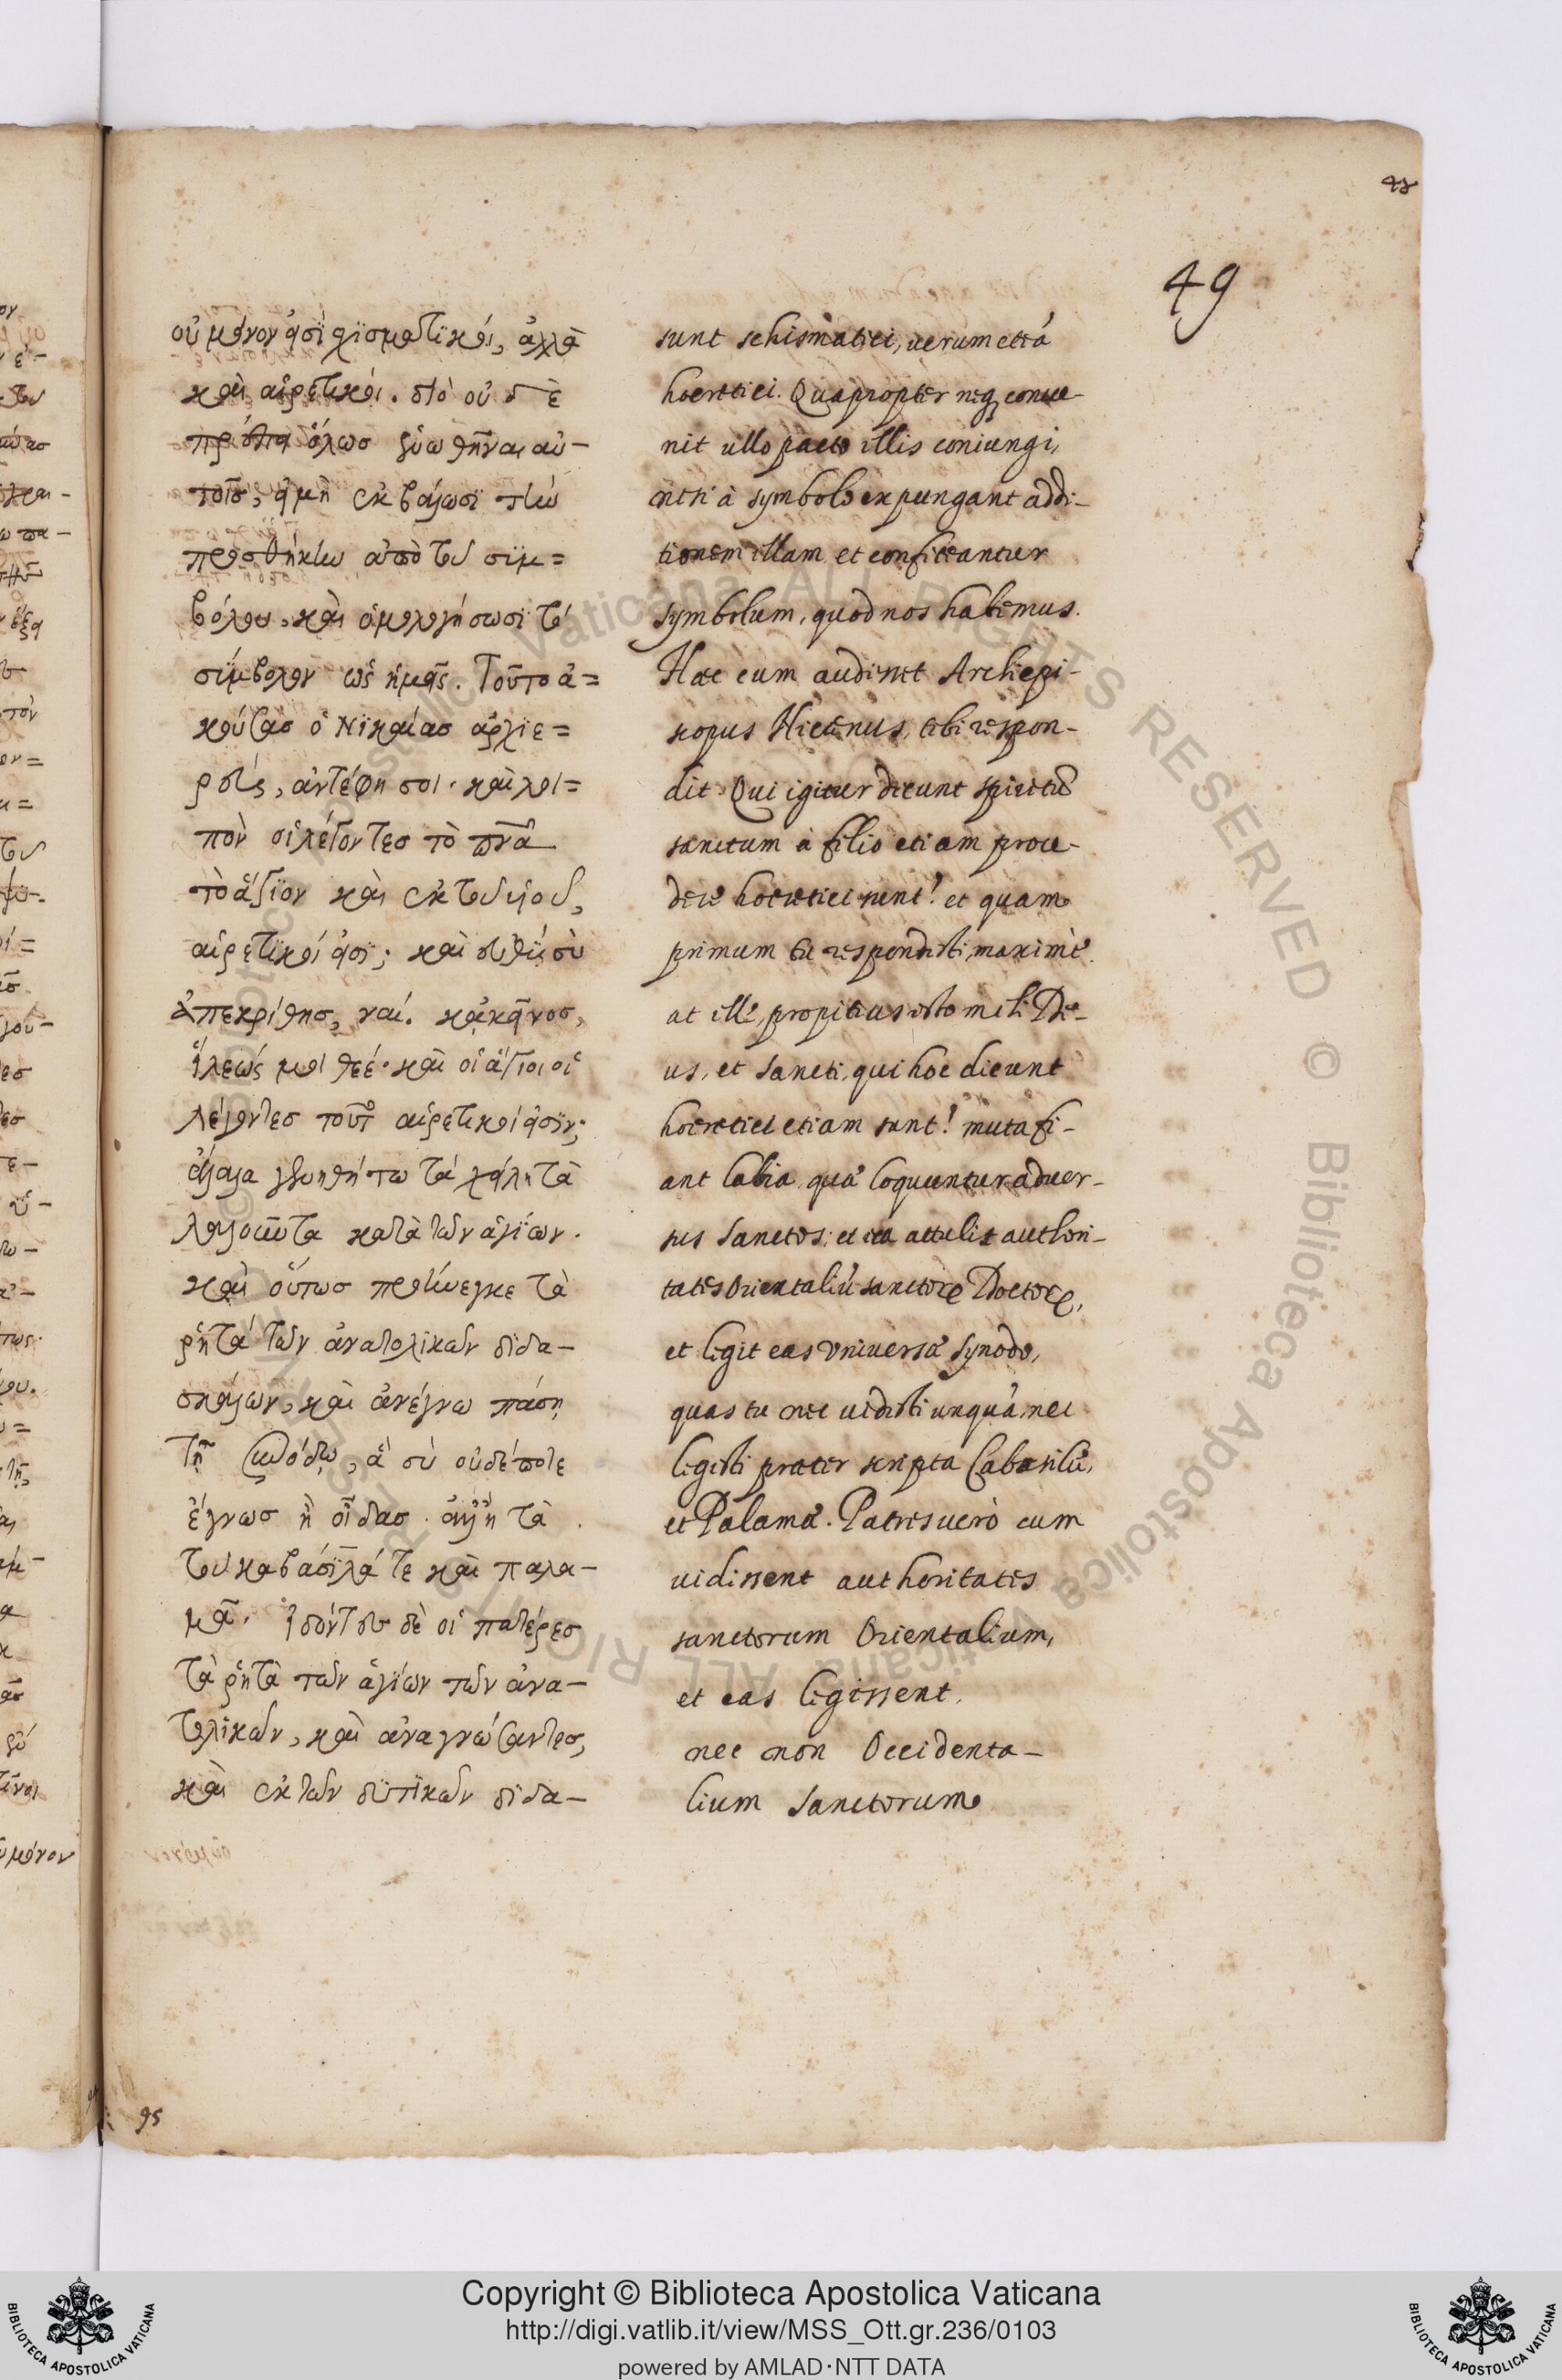 48
49
οὐ μόνον εἰσὶ σχϊσματϊκοί, ἀλλὰ
καὶ αἱρετικοί. διὸ οὐ δὲ
πρέπει ὅλωσ ἑνωθῆναι αὐ-
τοῖσ, εἰμὴ ἐκβάλωσϊ τὴν
προσθήκην ἀπὸ τοῦ σϋμ=
βόλου, καὶ ὁμολογήσωσϊ τὸ
σύμβολον ὡς ἡμεῖς. Τοῦτο ἀ=
κούσασ ὁ Νϊκαίασ ἀρχϊε=
ρεὺς, ἀντέφη σοι· καὶ λοι=
πὸν οἱ λέγοντεσ τὸ πνᾶ
τὸ ἅγϊον καὶ ἐκ τοῦ υἱοῦ,
αἱρετϊκοί εἰσϊ; καὶ εὐθὺς σὺ
ἀπεκρίθησ, ναί. κἀκεῖνοσ,
ἵλεώς μοι θεέ· καὶ οἱ ἅγιοι οἱ
λέγοντεσ τοῦτο αἱρετικοί εἰσϊν;
ἄλαλα γενηθήτω τὰ χείλη τὰ
λαλοῦντα κατὰ τῶν ἁγίων.
καὶ οὕτωσ προήνεγκε τὰ
ρητὰ τῶν ἀνατολϊκῶν δϊδα-
σκάλων, καὶ ἀνέγνω πάσῃ
τῇ συνόδῳ, ἃ σὺ οὐδέποτε
ἔγνωσ ἢ οἶδασ. ἀλλ' ἢ τὰ
τοῦ καβάσϊλά τε καὶ παλα-
μᾶ. ἰδόντεσ δὲ οἱ πατέρεσ
τὰ ρητὰ τῶν ἁγίων τῶν ἀνα-
τολϊκῶν, καὶ ἀναγνώσαντεσ,
καὶ ἐκ τῶν δϋτϊκῶν δϊδα-
sunt schismatici, uerum etiā
hoeretici. Quapropter neq; conue-
nit ullo pacto illis coniungi,
ni si à symbolo expungant addi-
tionem illam et confiteantur
symbolum, quod nos habemus.
Hac cum audisset Archiepi-
scopus Nicenus, tibi respon-
dit Qui igitur dicunt spiritū
sanctum à filio etiam proce-
dere hoeretici sunt? et quam
primum tu respondisti, maximè.
at ille, propitius esto mihi De-
us, et sancti, qui hoc dicunt
hoeretici etiam sunt? muta fi-
ant labia quae loquuntur aduer-
sus sanctos; et ita attulit authori-
tates Orientaliū sanctorū Doctorū,
et legit eas vniuersae synodo,
quas tu nec uidisti unquā nec
legisti praeter scripta Cabasilae,
et Palamae. Patres uerò cum
uidissent authoritates
sanctorum Orientalium,
et eas legissent,
nec non Occidenta-
lium sanctorum
95
Copyright © Biblioteca Apostolica Vaticana
http://digi.vatlib.it/view/MSS_Ott.gr.236/0103
powered by AMLAD·NTT DATA